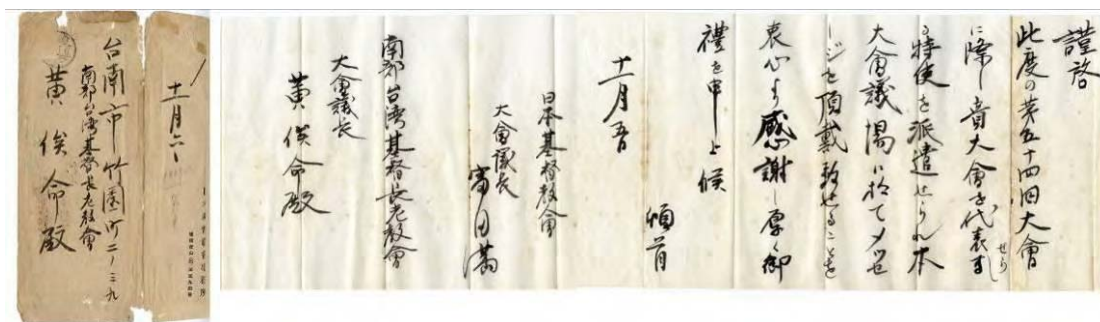 謹啓
此度の第五十四回大會
に際し貴大會を代表す
る特使を派遣せられ本
大會議場に於てメッセ
ージを頂戴致せることを
衷心より感謝し厚く御
禮を申上候
頓首
十一月五日
日本基督教會
大會議長
富田満
南部台湾基督長老教會
大會議長
黄俟命殿
十一月六日
台南市竹園町二ノ三九
南部台湾基督長老教會
黄俟命殿